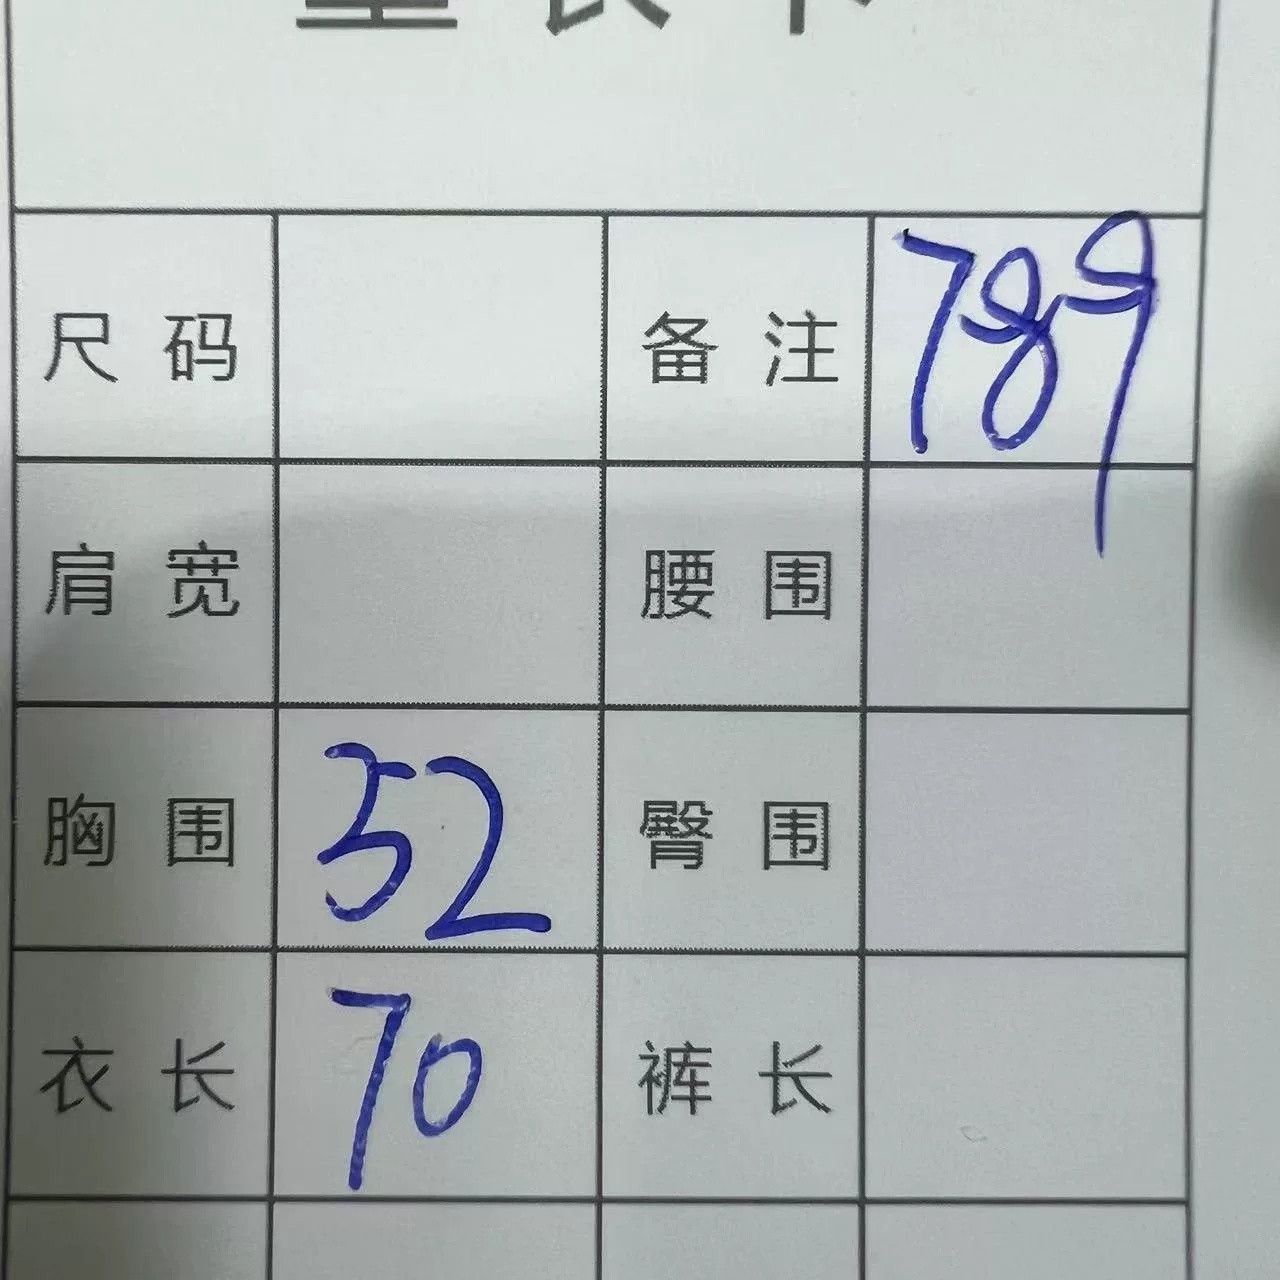 尺码 备注 789
肩宽 腰围
胸围 52 臀围
衣长 70 裤长